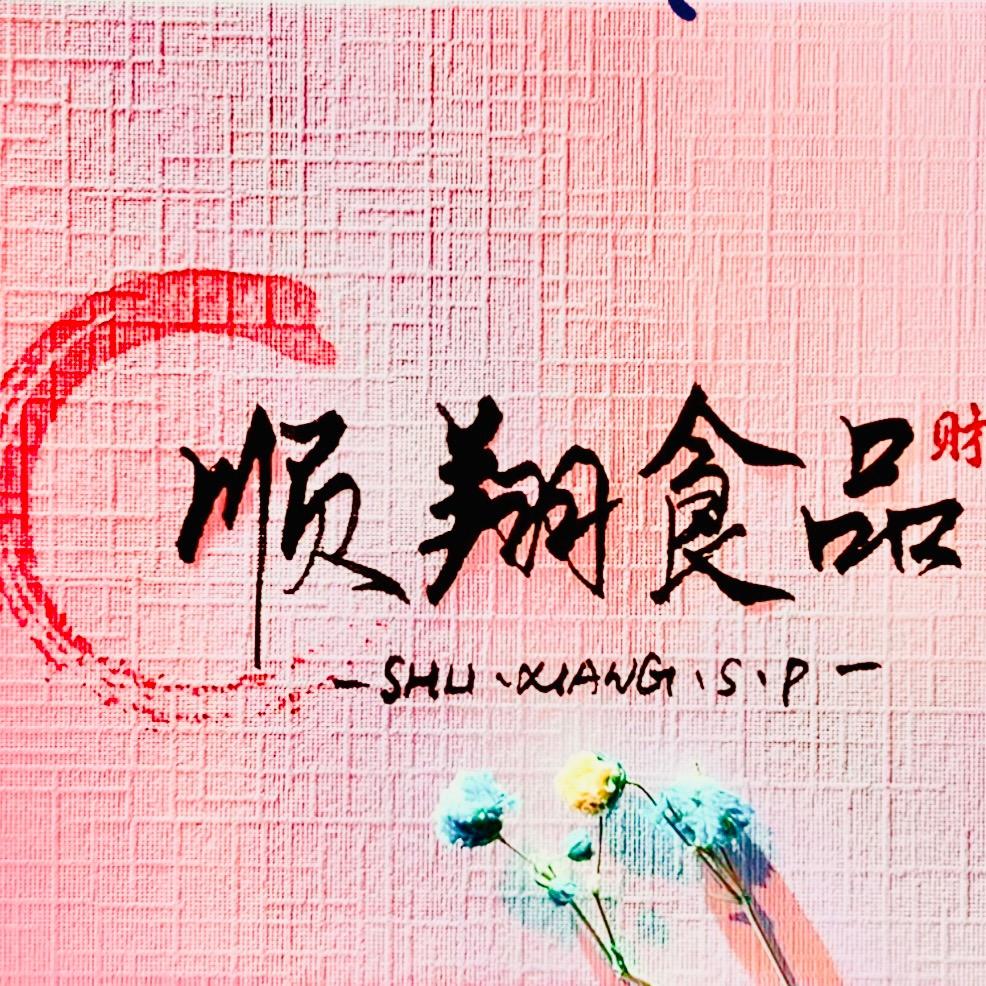 顺翔食品财
-SHU·XIANG·S·P-